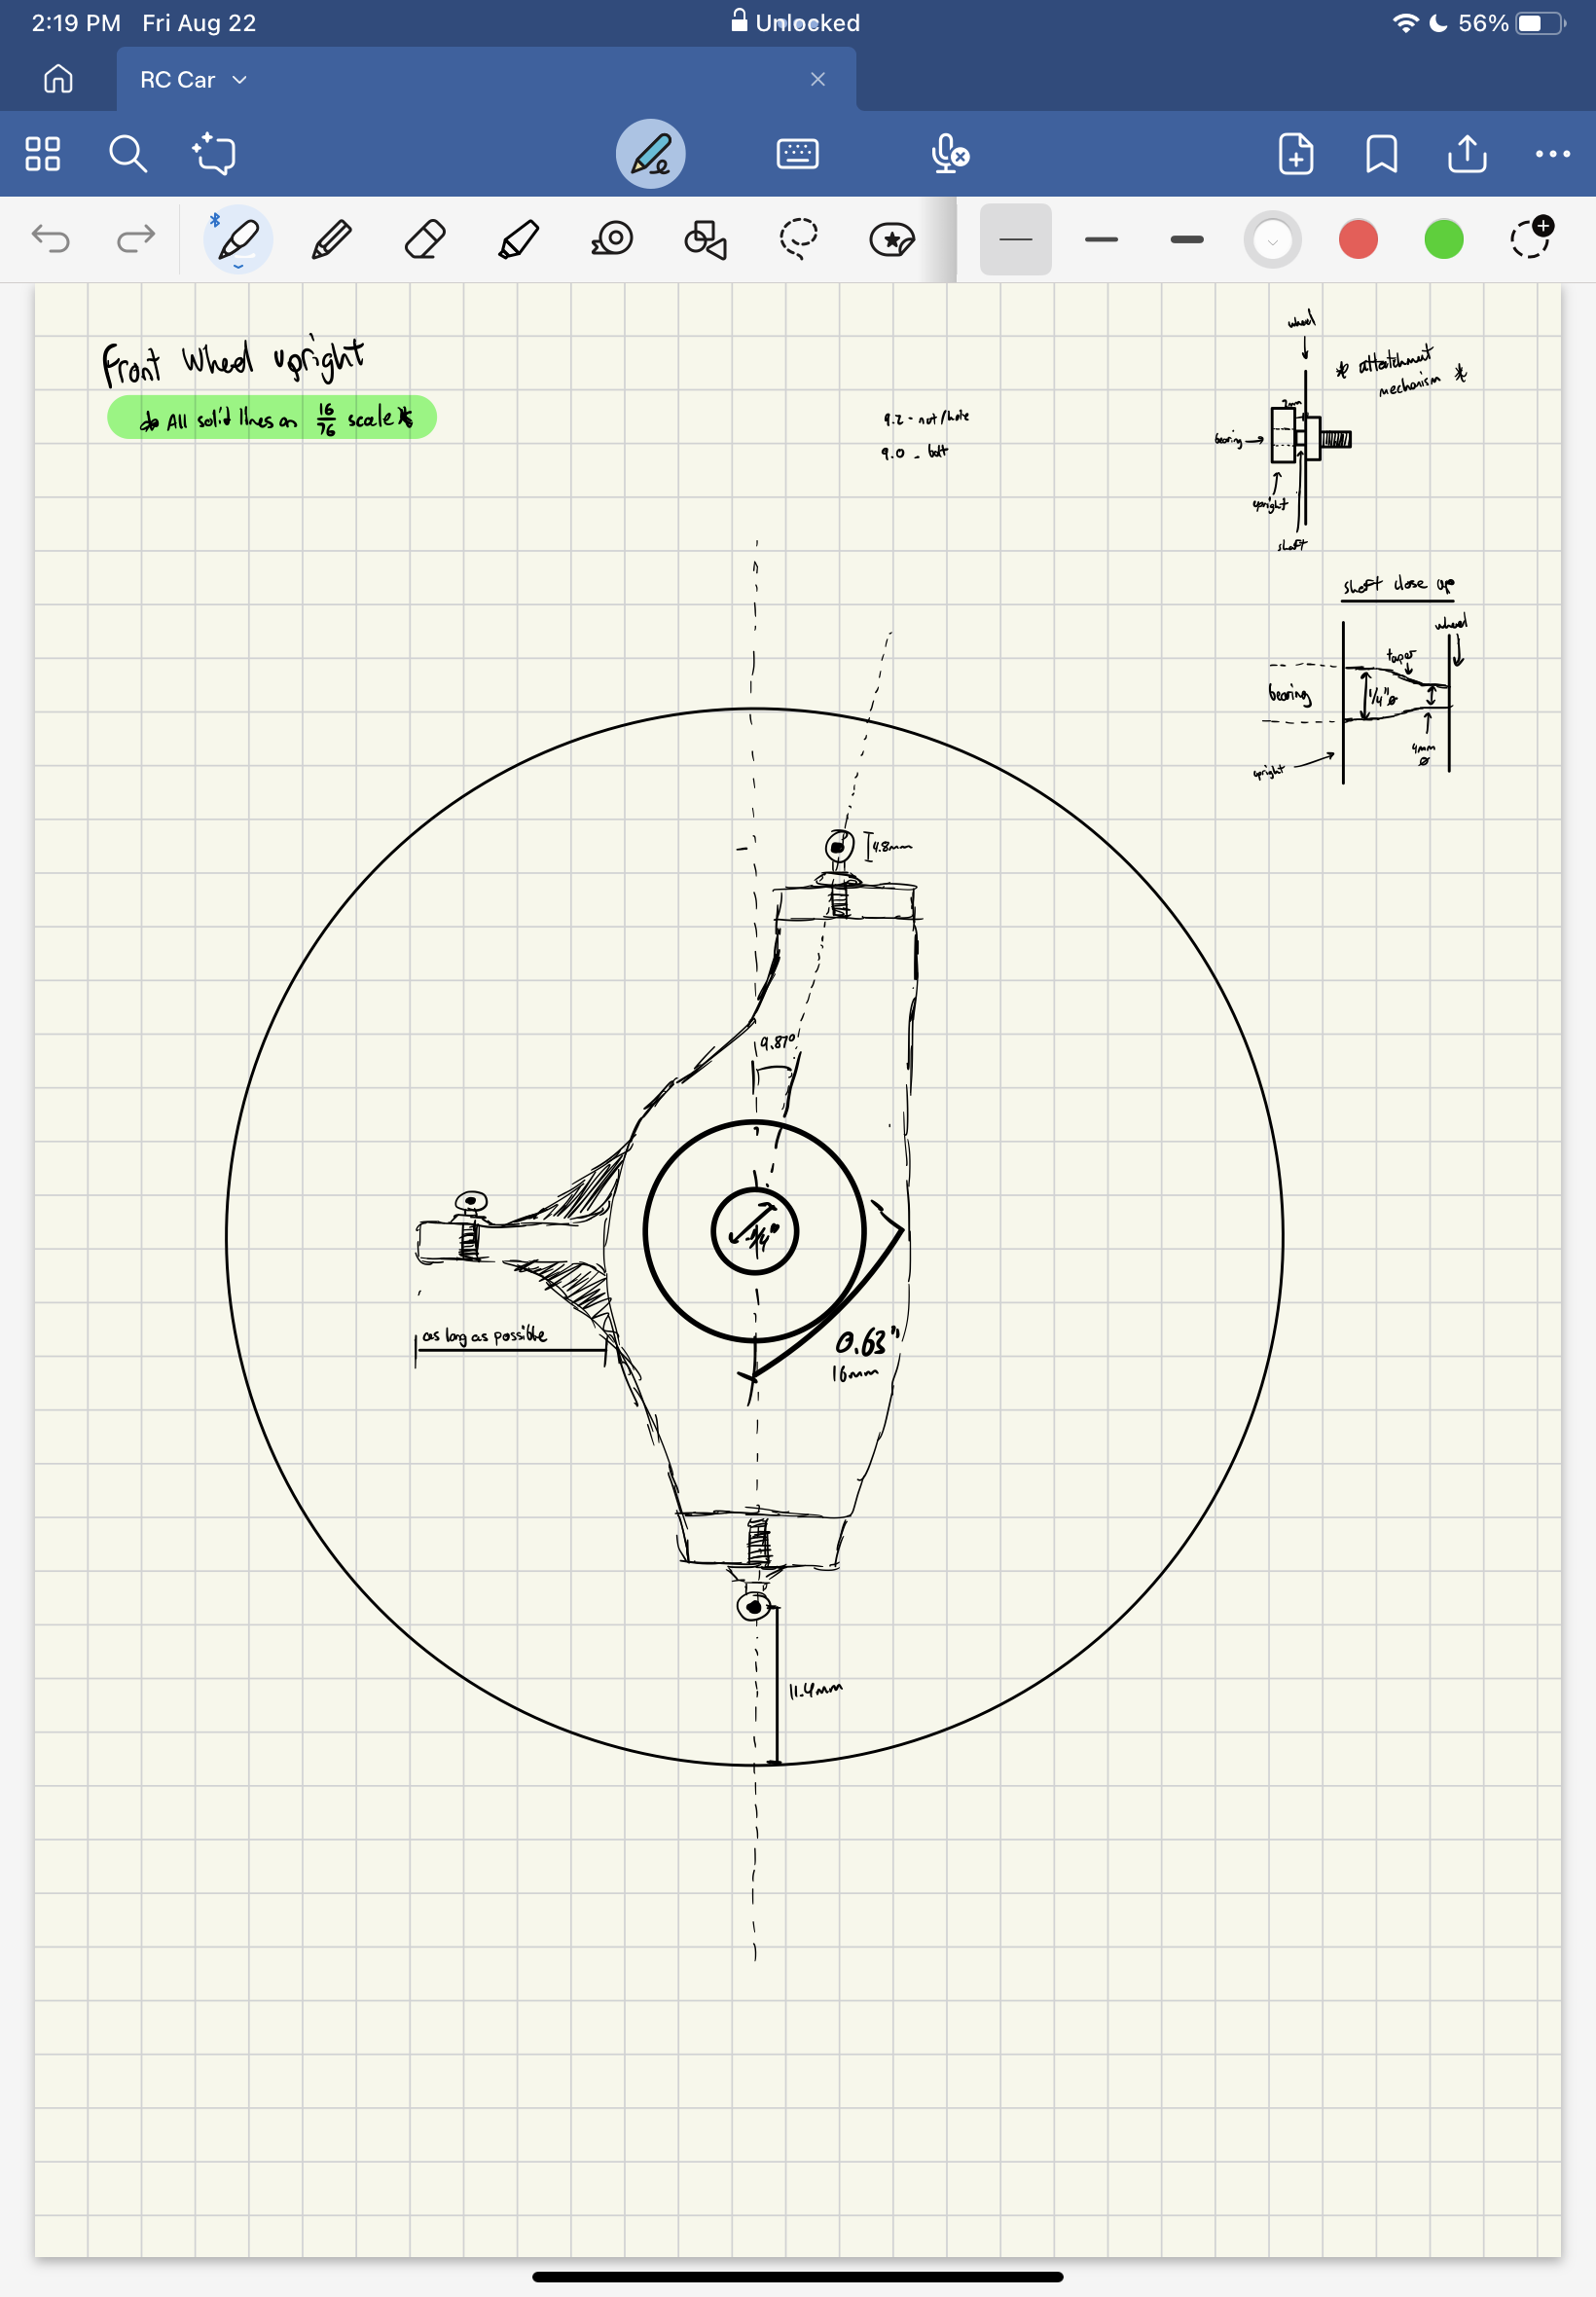 2:19 PM Fri Aug 22
Unlocked
56%
RC Car
Front Wheel upright
* All solid lines on 16/76 scale *
9.2 - nut/hole
9.0 - bolt
wheel
* attatchment
mechanism *
2mm
bearing
upright
shaft
shaft close up
wheel
taper
bearing
1/4" ⌀
4mm
⌀
upright
4.8mm
9.87°
1/4"
as long as possible
0.63"
16mm
11.4mm